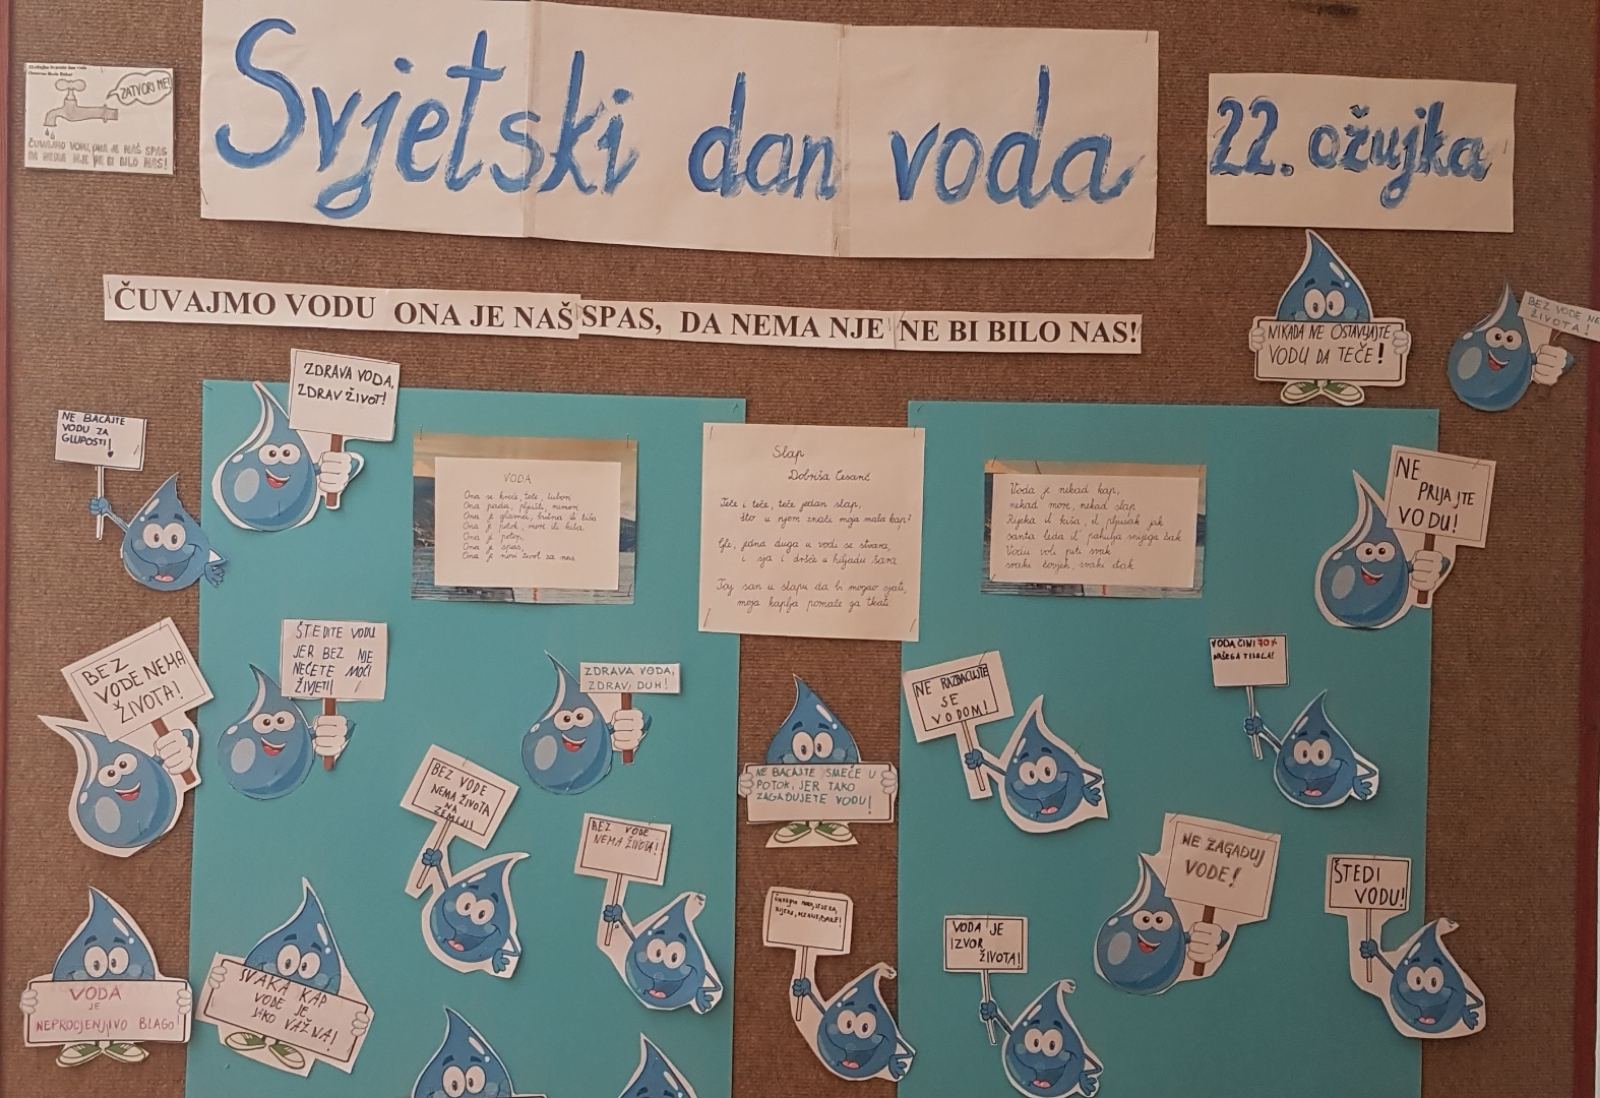 Svjetski dan voda
22. ožujka
ZATVORI ME!
ČUVAJMO VODU, ONA JE NAŠ SPAS
DA NEMA NJE NE BI BILO NAS!
ČUVAJMO VODU ONA JE NAŠ SPAS, DA NEMA NJE NE BI BILO NAS!
NIKADA NE OSTAVLJAJTE
VODU DA TEČE!
BEZ VODE NE
ŽIVOTA!
NE BACAJTE
VODU ZA
GLUPOSTI!
ZDRAVA VODA,
ZDRAV ŽIVOT!
VODA
Ona se kreće, teče, luta
Ona pada, pljušti,
Ona je glasna, bučna ili tiha
Ona je potok, more ili kiša
Ona je
Ona je spas,
Ona je novi život za nas
Slap
Dobriša Cesarić
Teče i teče, teče jedan slap,
što u njem znači moja mala kap?
Gle, jedna duga u vodi se stvara,
i sja i dršće u hiljadu šara
Taj san u slapu da bi mogao sjati,
moja kaplja pomaže ga tkati
Voda je nekad kap,
nekad more, nekad slap
Rijeka il' kiša, il' pljusak jak
santa leda il' pahulja snijega lak
Vodu voli piti svak
svaki čovjek, svaki đak
NE
PRLJAJTE
VODU!
BEZ
VODE NEMA
ŽIVOTA!
ŠTEDITE VODU
JER BEZ NJE
NEĆETE MOĆI
ŽIVJETI!
ZDRAVA VODA,
ZDRAV DUH!
NE RAZBACUJTE
SE
VODOM!
VODA ČINI 70%
NAŠEGA TIJELA!
BEZ VODE
NEMA ŽIVOTA
NA
ZEMLJI!
BEZ VODE
NEMA ŽIVOTA!
NE BACAJTE SMEĆE U
POTOK, JER TAKO
ZAGAĐUJETE VODU!
NE ZAGAĐUJ
VODE!
ŠTEDI
VODU!
VODA JE
IZVOR
ŽIVOTA!
VODA
JE
NEPROCJENJIVO BLAGO!
SVAKA KAP
VODE JE
JAKO VAŽNA!